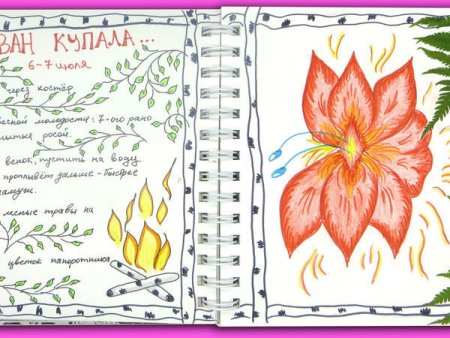 ВАН КУПАЛА...
6-7 июля
через костёр
ской молодости: 7-ого рано
мыться росой.
венок, пустить на воду
проплывёт дальше - быстрее
замуж.
лесные травы на
цветок папоротника